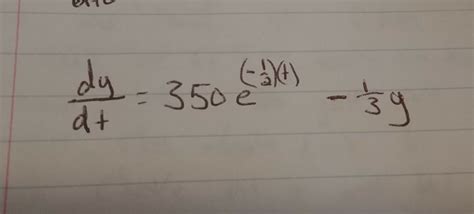 dy/dt = 350e^(-1/2)(t) - 1/3 y